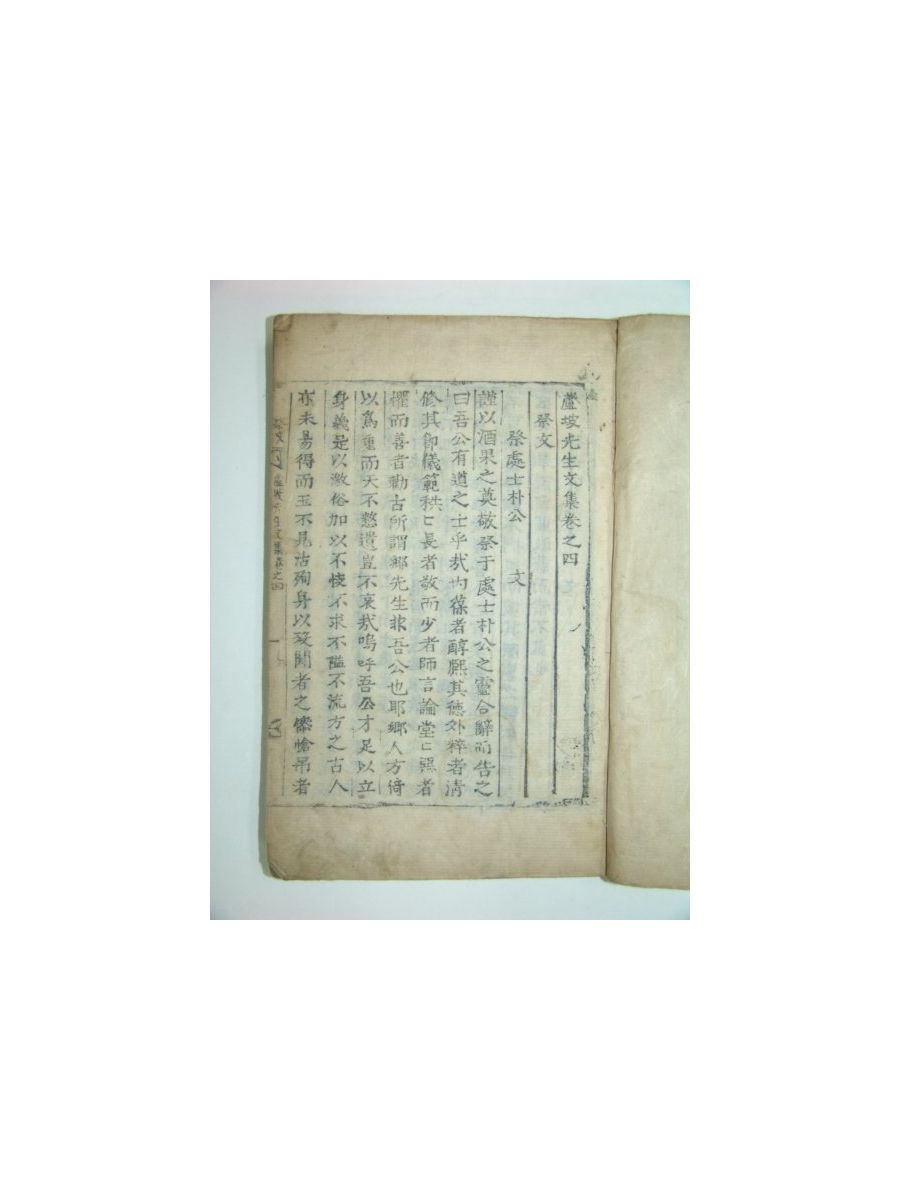 蘆坡先生文集卷之四
祭文
祭處士朴公 文
謹以酒果之奠敬祭于處士朴公之靈合辭而告之
曰吾公有道之士乎哉內葆者醇熙其德外粹者淸
修其節儀範秩〻長者敬而少者師言論堂〻惡者
懼而善者勸古所謂鄕先生非吾公也耶鄕人方倚
以爲重而天不憗遺豈不哀哉嗚呼吾公才足以立
身義是以激俗加以不忮不求不隘不流方之古人
亦未易得而玉不見沽殉身以歿聞者之傷愴吊者
蘆坡先生文集卷之四
一